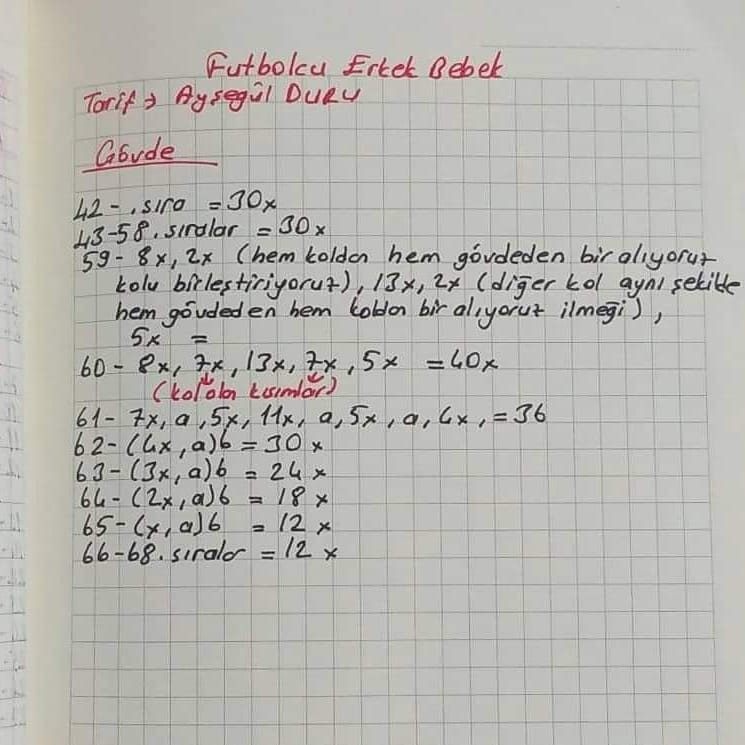 Futbolcu Erkek Bebek
Tarif → Ayşegül DURU
Gövde
42- .sıra = 30x
43-58.sıralar = 30x
59- 8x, 2x (hem koldan hem gövdeden bir alıyoruz
kolu birleştiriyoruz), 13x, 2x (diğer kol aynı şekilde
hem gövdeden hem koldan bir alıyoruz ilmeği),
5x =
60- 8x, 7x, 13x, 7x, 5x = 40x
(kol olan kısımlar)
61- 7x, a, 5x, 11x, a, 5x, a, 4x, = 36
62-(4x, a)6 = 30 x
63-(3x, a)6 = 24 x
64-(2x, a)6 = 18 x
65-(x, a)6 = 12 x
66-68.sıralar = 12 x